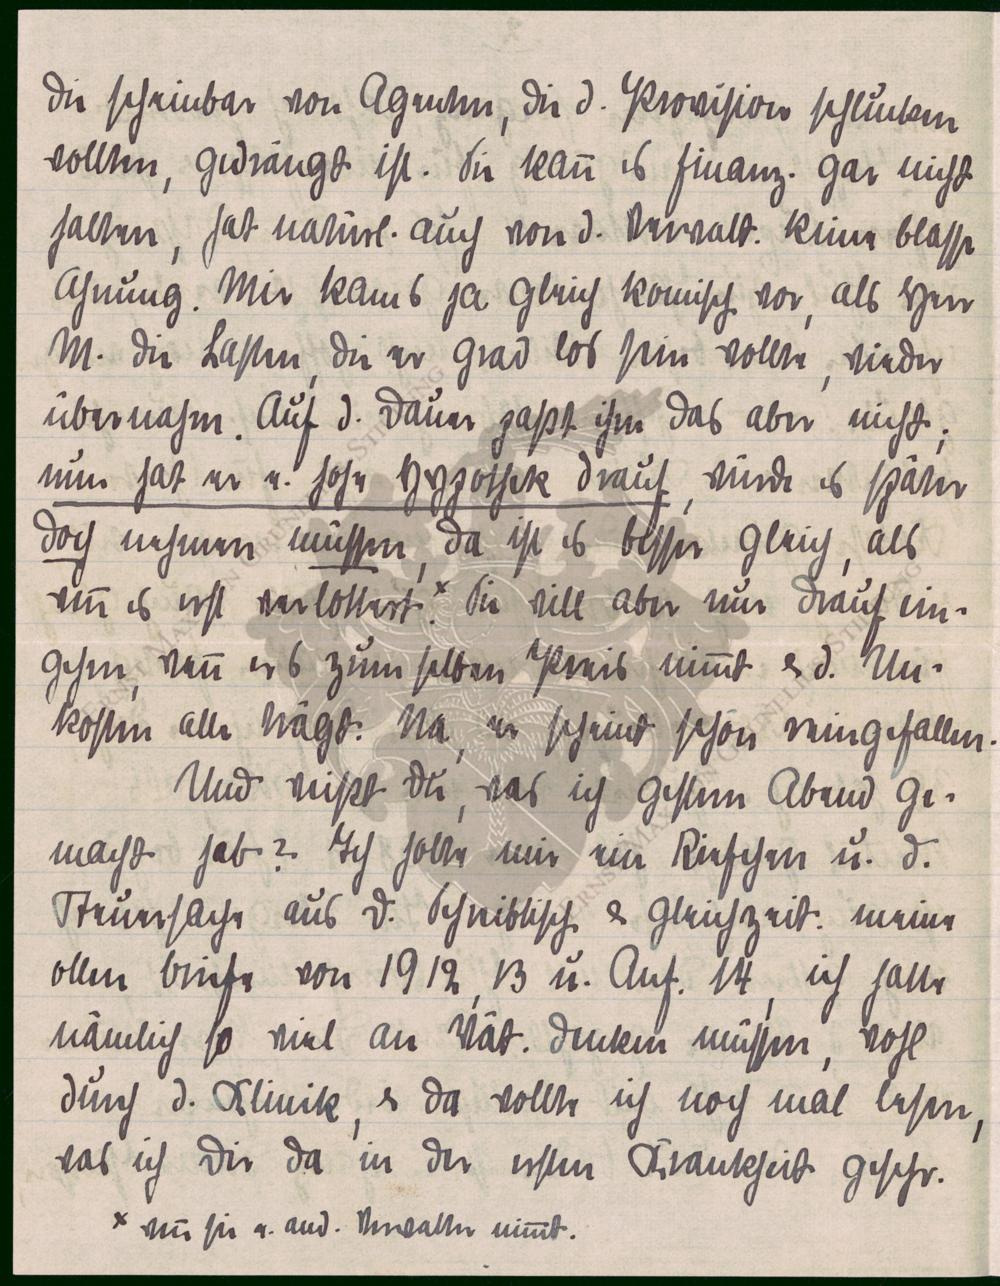 die scheinbar von Agenten, die d. Provision schlucken
wollten, gedrängt ist. Sie kan̄ es finanz. gar nicht
halten, hat natürl. auch von d. Verwalt. keine blasse
Ahnung. Mir kams ja gleich komisch vor, als Herr
M. die Lasten, die er grad los sein wollte, wieder
übernahm. Auf d. Dauer paßt ihm das aber nicht;
nun hat er e. hohe Hypothek drauf, würde es später
doch nehmen müssen, da ist es besser gleich, als
wen̄ es erst verlottert.ˣ Sie will aber nur drauf ein-
gehen, wen̄ ers zum selben Preis nim̄t & d. Un-
kosten alle trägt. Na, er scheint schön reingefallen.
Und weißt Du, was ich gestern Abend ge-
macht hab? Ich holte mir ein Kießchen u. d.
Steuersache aus d. Schreibtisch & gleichzeit. meine
ollen Briefe von 1912, 13 u. Anf. 14, ich hatte
nämlich so viel an Vät. denken müssen, wohl
durch d. Klinik, & da wollte ich noch mal lesen,
was ich Dir da in der ersten Krankheit geschr.
ˣ wen̄ sie e. and. Verwalter nim̄t.
ERNST MAX VON GRUNELIUS STIFTUNG
ERNST MAX VON GRUNELIUS STIFTUNG